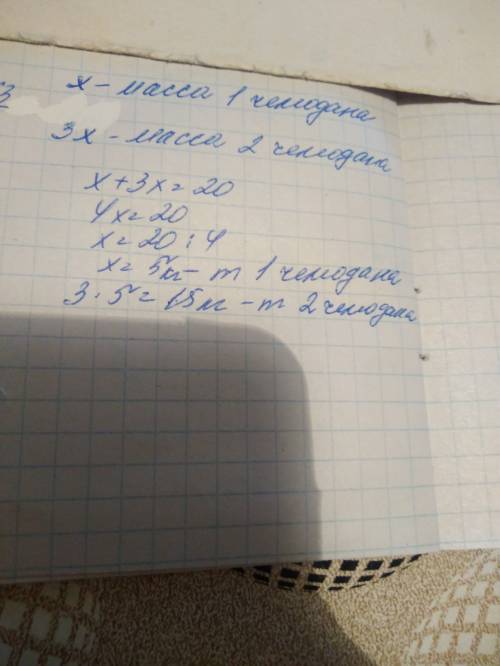 3
x - масса 1 чемодана
3x - масса 2 чемодана
x+3x=20
4x=20
x=20:4
x=5кг - m 1 чемодана
3·5=15кг - m 2 чемодана